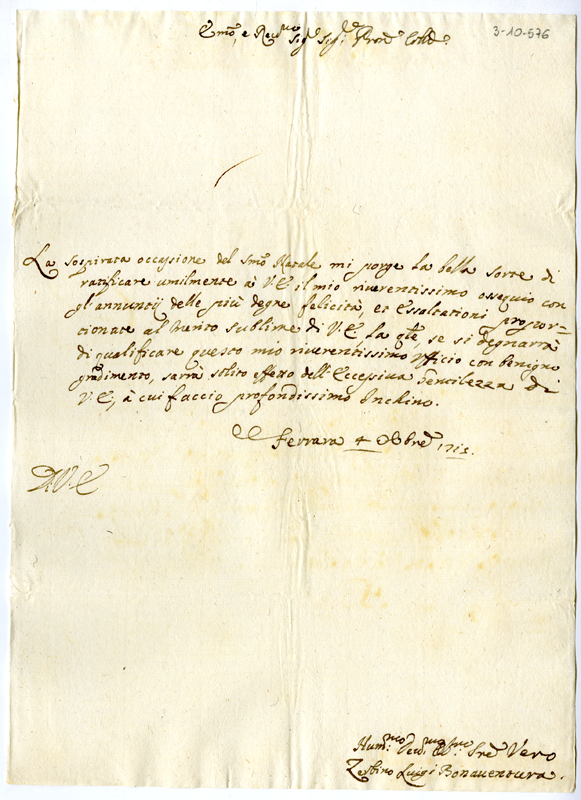 3-10-576
Emo, e Revmo Sigr Sigr Prone Colmo
La sospirata occassione del Smo Natale mi porge la bella sorte di
ratificare umilmente à V.E. il mio riverentissimo ossequio con
gl'annuntij delle più degne felicità, et Essaltationi propor-
tionate al merito sublime di V.E. la qle, se si degnarrà
di qualificare questo mio riverentissimo Ufficio con benigno
gradimento, sarrà solito effetto dell'Eccessiva Gentilezza di
V.E, à cui faccio profondissimo Inchino.
Ferrara 4 Xbre 1713.
D.V.E
Hummo Devmo Obmo Sre Vero
Zerbino Luigi Bonaventura.